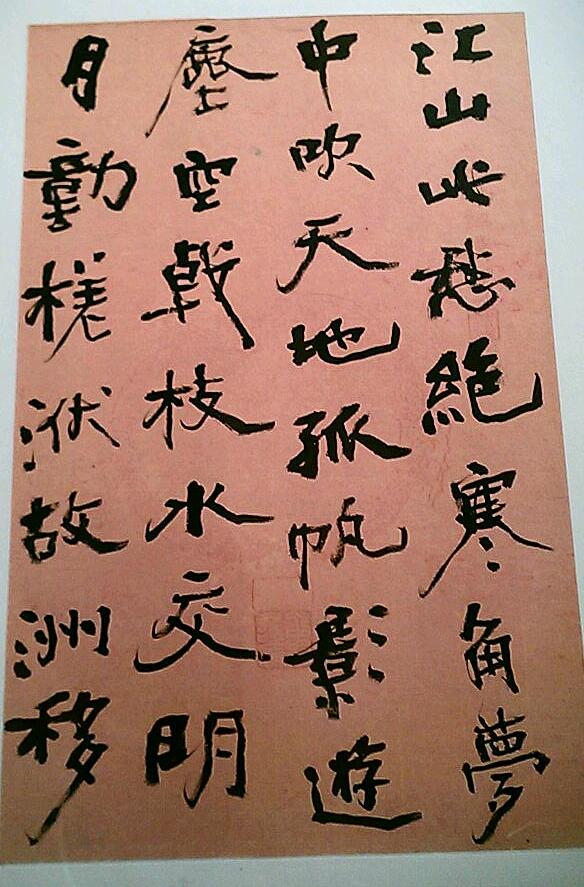 江山此愁絕寒角夢
中吹天地孤帆影遊
塵空戟枝水交明
月動槎洑故洲移